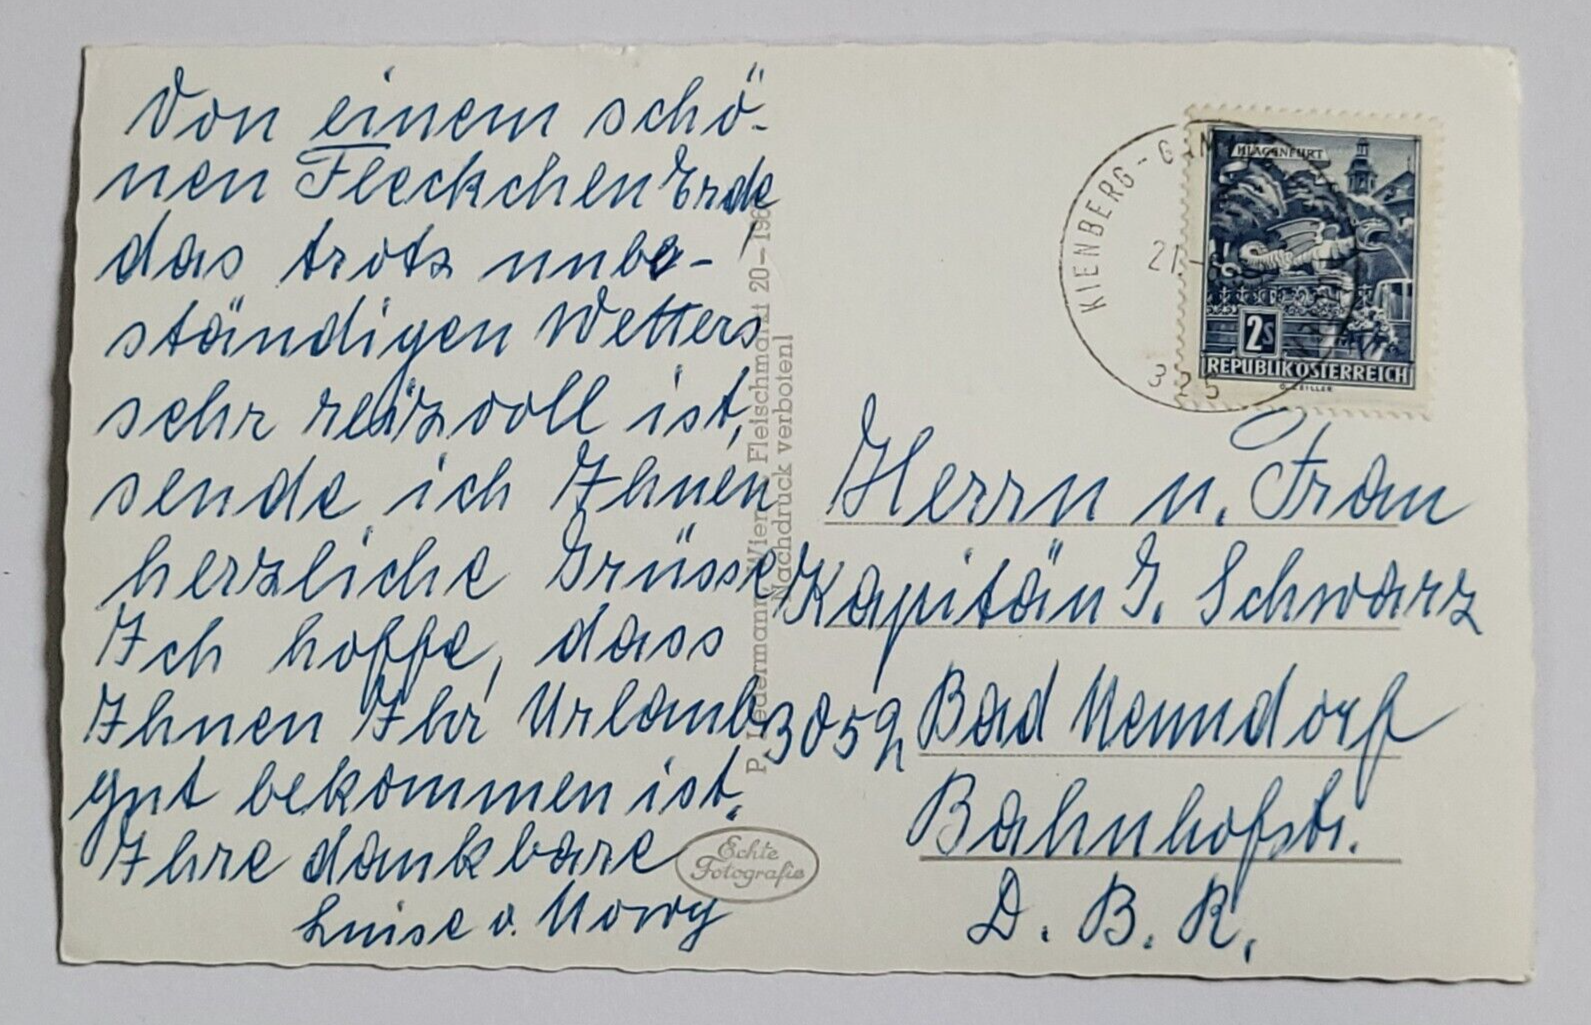 Von einem schö-
nen Fleckchen Erde
das trotz unbe-
ständigen Wetters
sehr reizvoll ist,
sende ich Ihnen
herzliche Grüsse
Ich hoffe, dass
Ihnen Ihr Urlaub
gut bekommen ist.
Ihre dankbare
Luise v.
P. Ledermann, Wien I, Fleischmarkt 20 – 196
Nachdruck verboten!
Echte
Fotografie
KIENBERG - GAMING
21.
325
KLAGENFURT
2S
REPUBLIK ÖSTERREICH
G. ZEILLER
Herrn u. Frau
Kapitän G. Schwarz
3052 Bad Nenndorf
Bahnhofstr.
D. B. R.